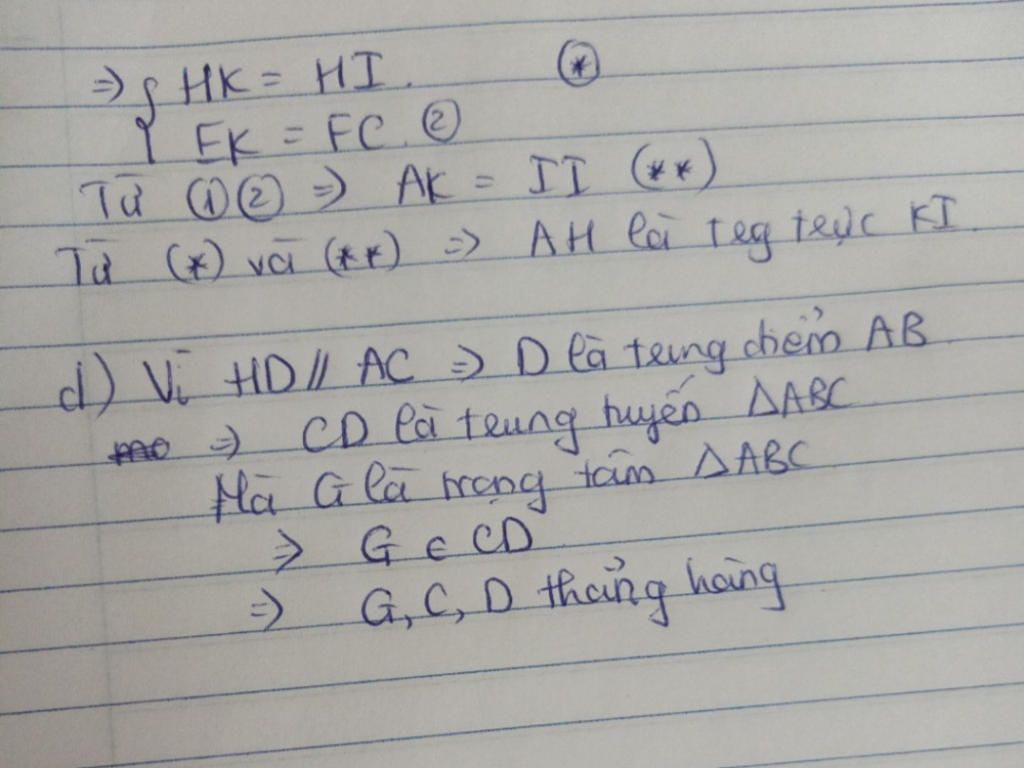 ⇒ { HK = HI. (*)
EK = FC. ②
Từ ①② ⇒ AK = II (**)
Từ (*) và (**) ⇒ AH là trg trực KI
d) Vì HD // AC ⇒ D là trung điểm AB
⇒ CD là trung tuyến ΔABC
Mà G là trọng tâm ΔABC
⇒ G ∈ CD
⇒ G, C, D thẳng hàng